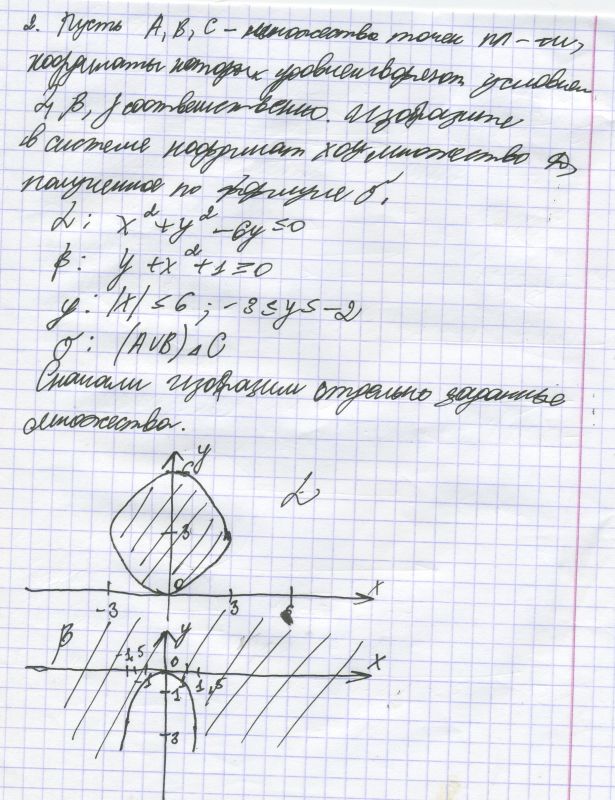 2. Пусть A, B, C – множества точек пл-ти,
координаты которых удовлетворяют условиям
α, β, γ соответственно. Изобразите
в системе координат XOY множество D,
полученное по формуле σ.
α: x²+y²-6y≤0
β: y+x²+1≥0
γ: |x|≤6; -3≤y≤-2
σ: (A∪B)△C
Сначала изобразим отдельно заданные
множества.
y
6
α
3
0
x
-3 3 6
β y
0 x
-1,5 -1 1 1,5
-1
-3